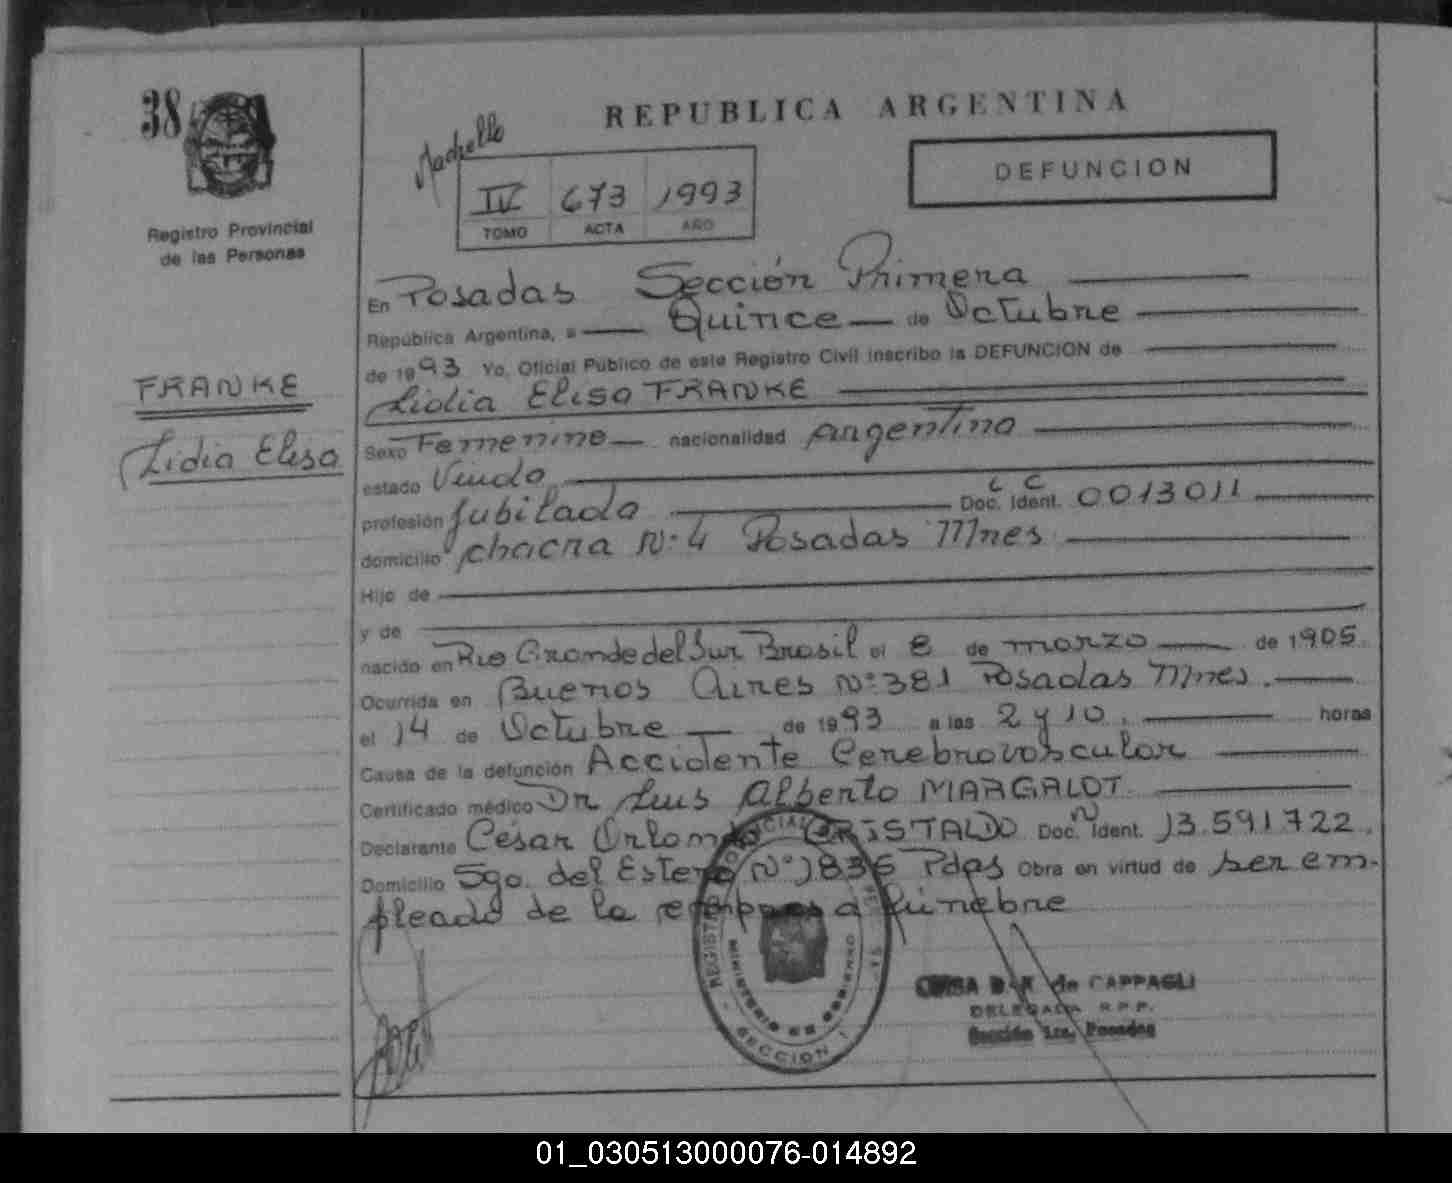 38
REPUBLICA ARGENTINA
DEFUNCION
IV 673 1993
TOMO ACTA AÑO
Registro Provincial
de las Personas
FRANKE
Lidia Elisa
En Posadas Sección Primera
República Argentina, a Quince de Octubre
de 1993 Yo, Oficial Público de este Registro Civil inscribo la DEFUNCION de
Lidia Elisa FRANKE
Sexo Femenino nacionalidad Argentina
estado Viuda
profesión Jubilada Doc. Ident. C C 0013011
domicilio chacra Nº 4 Posadas Mnes
Hijo de
y de
nacido en Rio Grande del Sur Brasil el 8 de marzo de 1905
Ocurrida en Buenos Aires Nº 381 Posadas Mnes.
el 14 de Octubre de 1993 a las 2 y 10. horas
Causa de la defunción Accidente Cerebrovascular
Certificado médico Dr Luis Alberto MARGALOT
Declarante César Orlando CRISTALDO Doc. N Ident. 13.591.722.
Domicilio Sgo. del Estero Nº 1836 Pdas Obra en virtud de ser em-
pleado de la empresa fúnebre
MINISTERIO DE GOBIERNO
SECCION 1
de CAPPAGLI
DELEGADA R.P.P.
Sección 1ra. Posadas
01_030513000076-014892